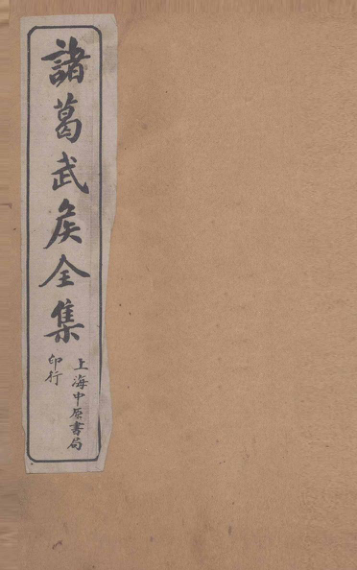 諸葛武矦全集
上海中原書局
印行